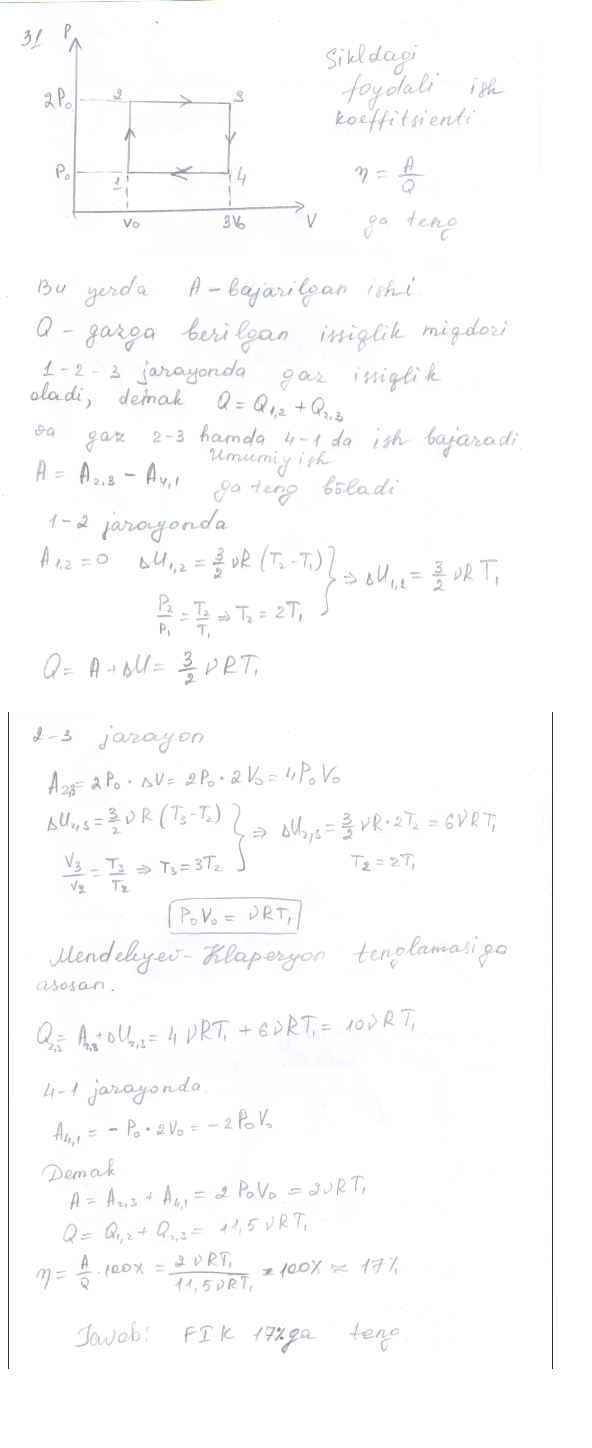 31. P
Sikldagi
foydali ish
koeffitsienti
2P₀ 2 3
η = A/Q
P₀ 1 4
V₀ 3V₀ V
ga teng
Bu yerda A – bajarilgan ishi.
Q – gazga berilgan issiqlik miqdori
1-2-3 jarayonda gaz issiqlik
oladi, demak Q = Q₁,₂ + Q₂,₃
va gaz 2-3 hamda 4-1 da ish bajaradi.
Umumiy ish
A = A₂,₃ – A₄,₁ ga teng bo̅ladi
1-2 jarayonda
A₁,₂ = 0 ΔU₁,₂ = 3/2 νR (T₂ - T₁) } ⇒ ΔU₁,₂ = 3/2 νRT₁
P₂/P₁ = T₂/T₁ ⇒ T₂ = 2T₁
Q = A + ΔU = 3/2 νRT₁
2-3 jarayon
A₂,₃ = 2P₀ · ΔV = 2P₀ · 2V₀ = 4P₀V₀
ΔU₂,₃ = 3/2 νR (T₃ - T₂) } ⇒ ΔU₂,₃ = 3/2 νR · 2T₂ = 6νRT₁
V₃/V₂ = T₃/T₂ ⇒ T₃ = 3T₂ T₂ = 2T₁
P₀V₀ = νRT₁
Mendeleyev - Klaperyon tenglamasiga
asosan.
Q₂,₃ = A₂,₃ + ΔU₂,₃ = 4νRT₁ + 6νRT₁ = 10νRT₁
4-1 jarayonda.
A₄,₁ = - P₀ · 2V₀ = - 2P₀V₀
Demak
A = A₂,₃ + A₄,₁ = 2P₀V₀ = 2νRT₁
Q = Q₁,₂ + Q₂,₃ = 11,5νRT₁
η = A/Q · 100% = 2νRT₁/11,5νRT₁ · 100% ≈ 17%
Javob: FIK 17%ga teng.